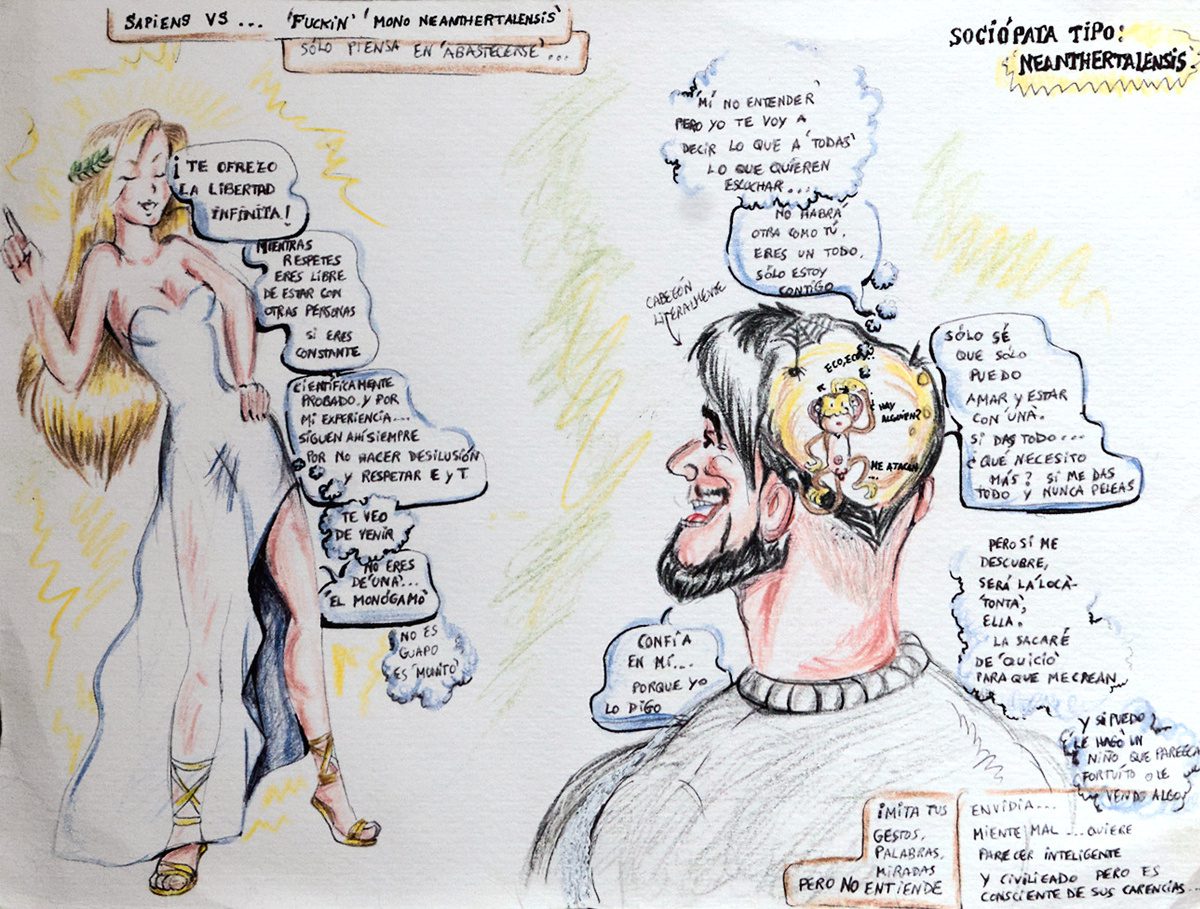 SAPIENS VS ... 'FUCKIN' 'MONO NEANTHERTALENSIS'
SÓLO PIENSA EN 'ABASTECERSE'...
SOCIÓPATA TIPO:
'NEANTHERTALENSIS'.
¡TE OFREZO
LA LIBERTAD
INFINITA!
MIENTRAS
RESPETES
ERES LIBRE
DE ESTAR CON
OTRAS PERSONAS
SI ERES
CONSTANTE
CIENTIFICAMENTE
PROBADO, Y POR
MI EXPERIENCIA...
SIGUEN AHI SIEMPRE
POR NO HACER DESILUSIÓN
Y RESPETAR E Y T
TE VEO
DE VENIR
NO ERES
DE 'UNA'...
'EL MONÓGAMO'
NO ES
GUAPO
ES 'MONITO'
'MÍ NO ENTENDER'
PERO YO TE VOY A
DECIR LO QUE A 'TODAS'
LO QUE QUIEREN
ESCUCHAR...
NO HABRÁ
OTRA COMO TÚ,
ERES UN TODO,
SÓLO ESTOY
CONTIGO
CABEZÓN
LITERALMENTE
ECO, ECO...
¿HAY
ALGUIEN?
ME ATACAN
...
SÓLO SÉ
QUE SÓLO
PUEDO
AMAR Y ESTAR
CON 'UNA'.
SI DAS TODO...
¿QUÉ NECESITO
MÁS? SI ME DAS
TODO Y NUNCA PELEAS
CONFÍA
EN MÍ...
PORQUE YO
LO DIGO
PERO SI ME
DESCUBRE,
SERÁ LA 'LOCA'-
'TONTA',
ELLA.
LA SACARÉ
DE 'QUICIO'
PARA QUE ME CREAN
Y SI PUEDO
LE HAGO UN
NIÑO QUE PAREZCA
FORTUÍTO O LE
VENDO ALGO
IMITA TUS
GESTOS,
PALABRAS,
MIRADAS
PERO NO ENTIENDE
ENVIDIA...
MIENTE MAL... QUIERE
PARECER INTELIGENTE
Y CIVILIZADO PERO ES
CONSCIENTE DE SUS CARENCIAS...